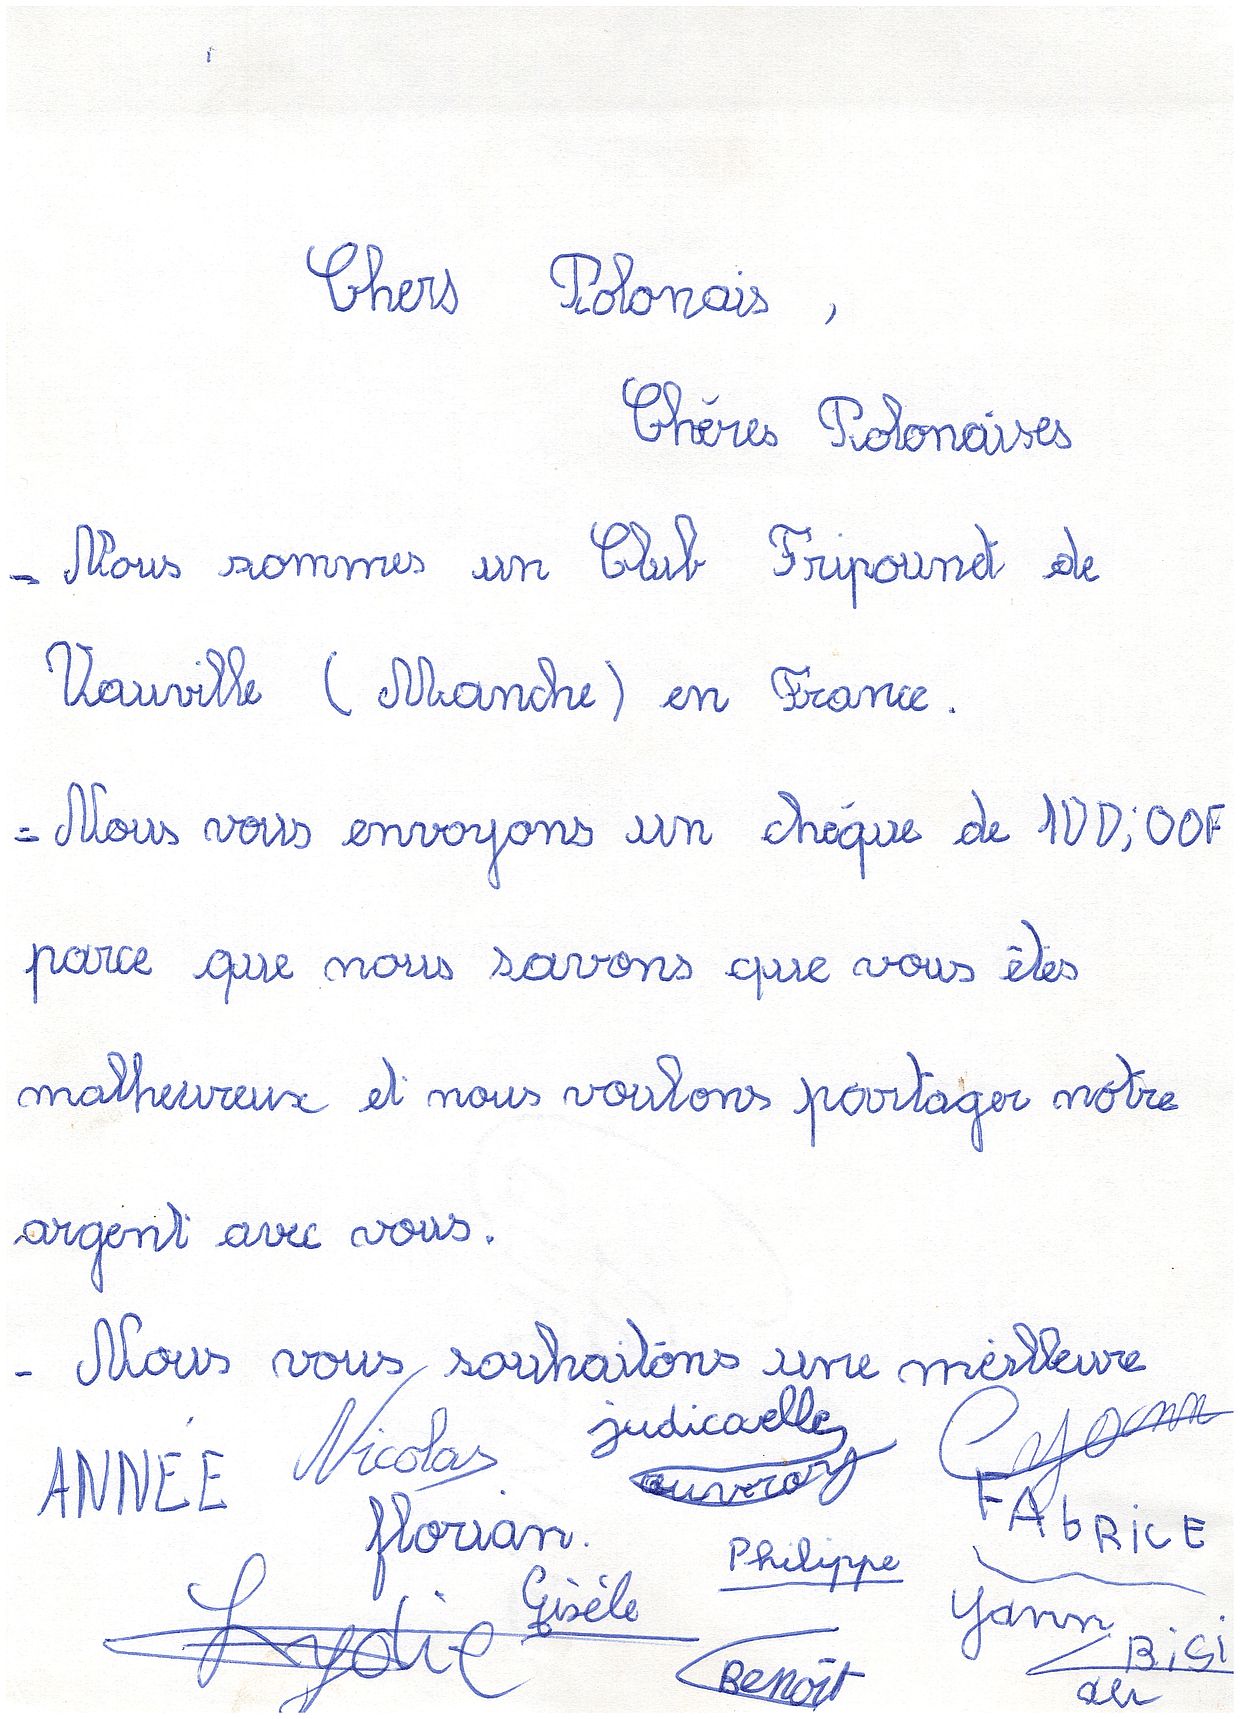 Chers Polonais,
Chères Polonaises
- Nous sommes un Club Fripounet de
Vauville (Manche) en France.
- Nous vous envoyons un chèque de 100,00F
parce que nous savons que vous êtes
malheureux et nous voulons partager notre
argent avec vous.
- Nous vous souhaitons une meilleure
ANNÉE
Nicolas
judicaelle
auvray
florian.
FAbRiCE
Philippe
Gisèle
Yann
Lydie
Benoît